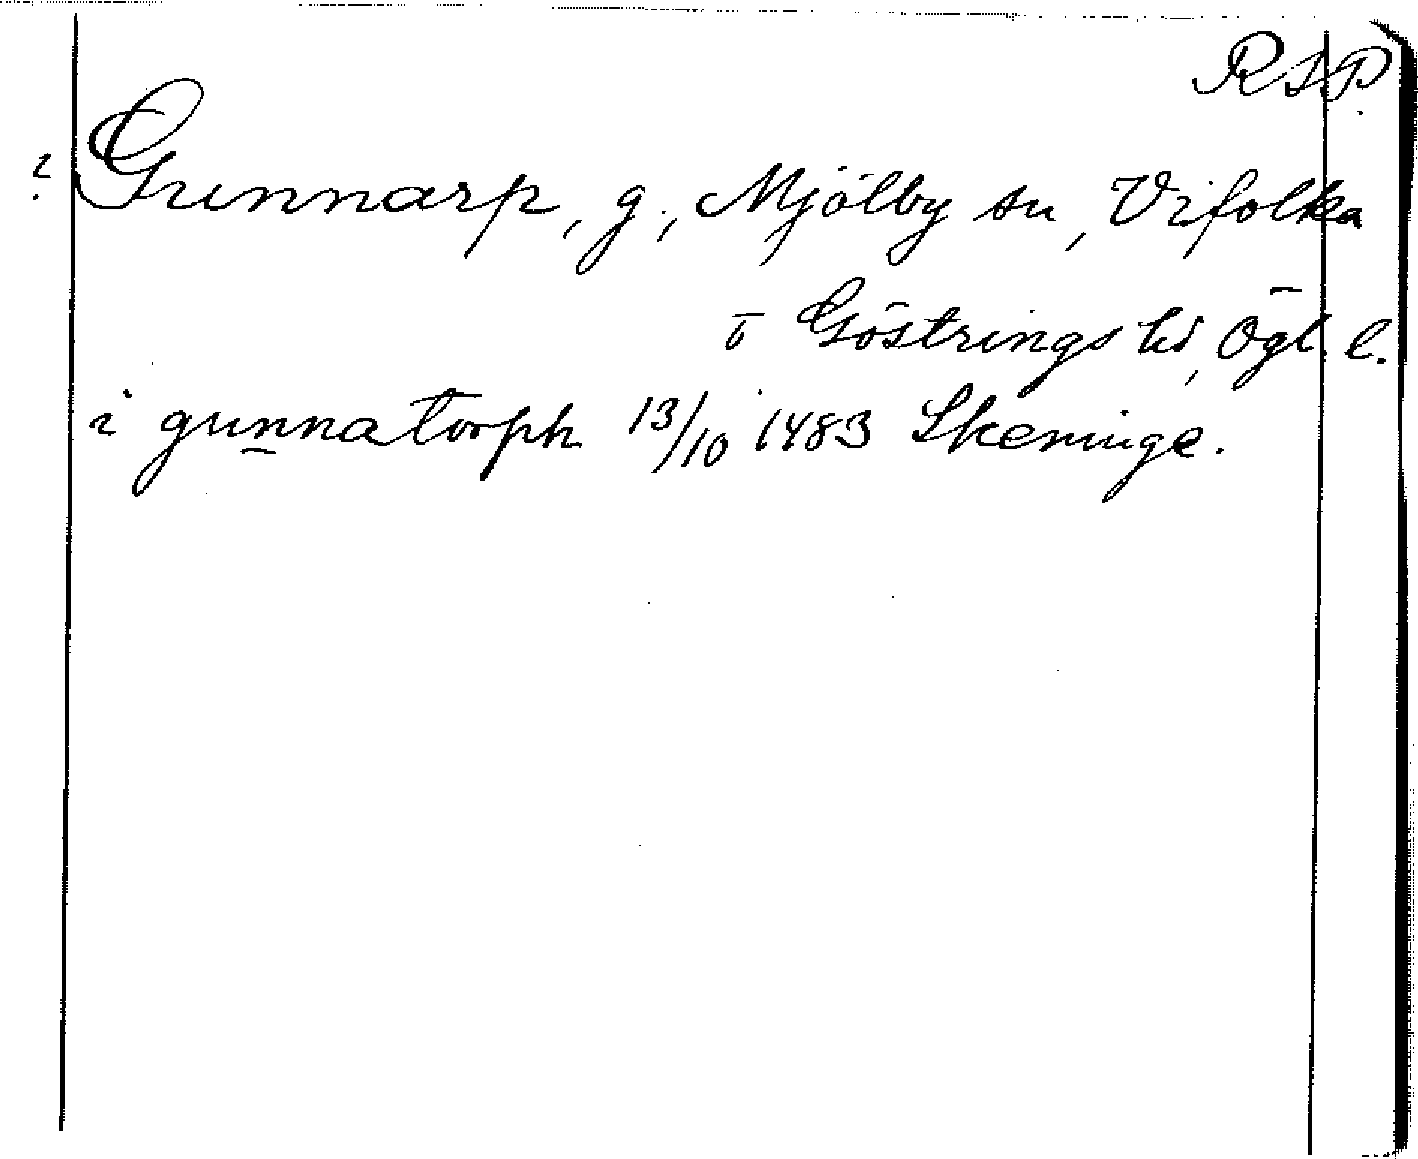 RAP.
? Gunnarp, g., Mjölby sn, Vifolka
o Göstrings hd, Ögl. l.
i gunnatorph 13/10 1483 Skeninge.